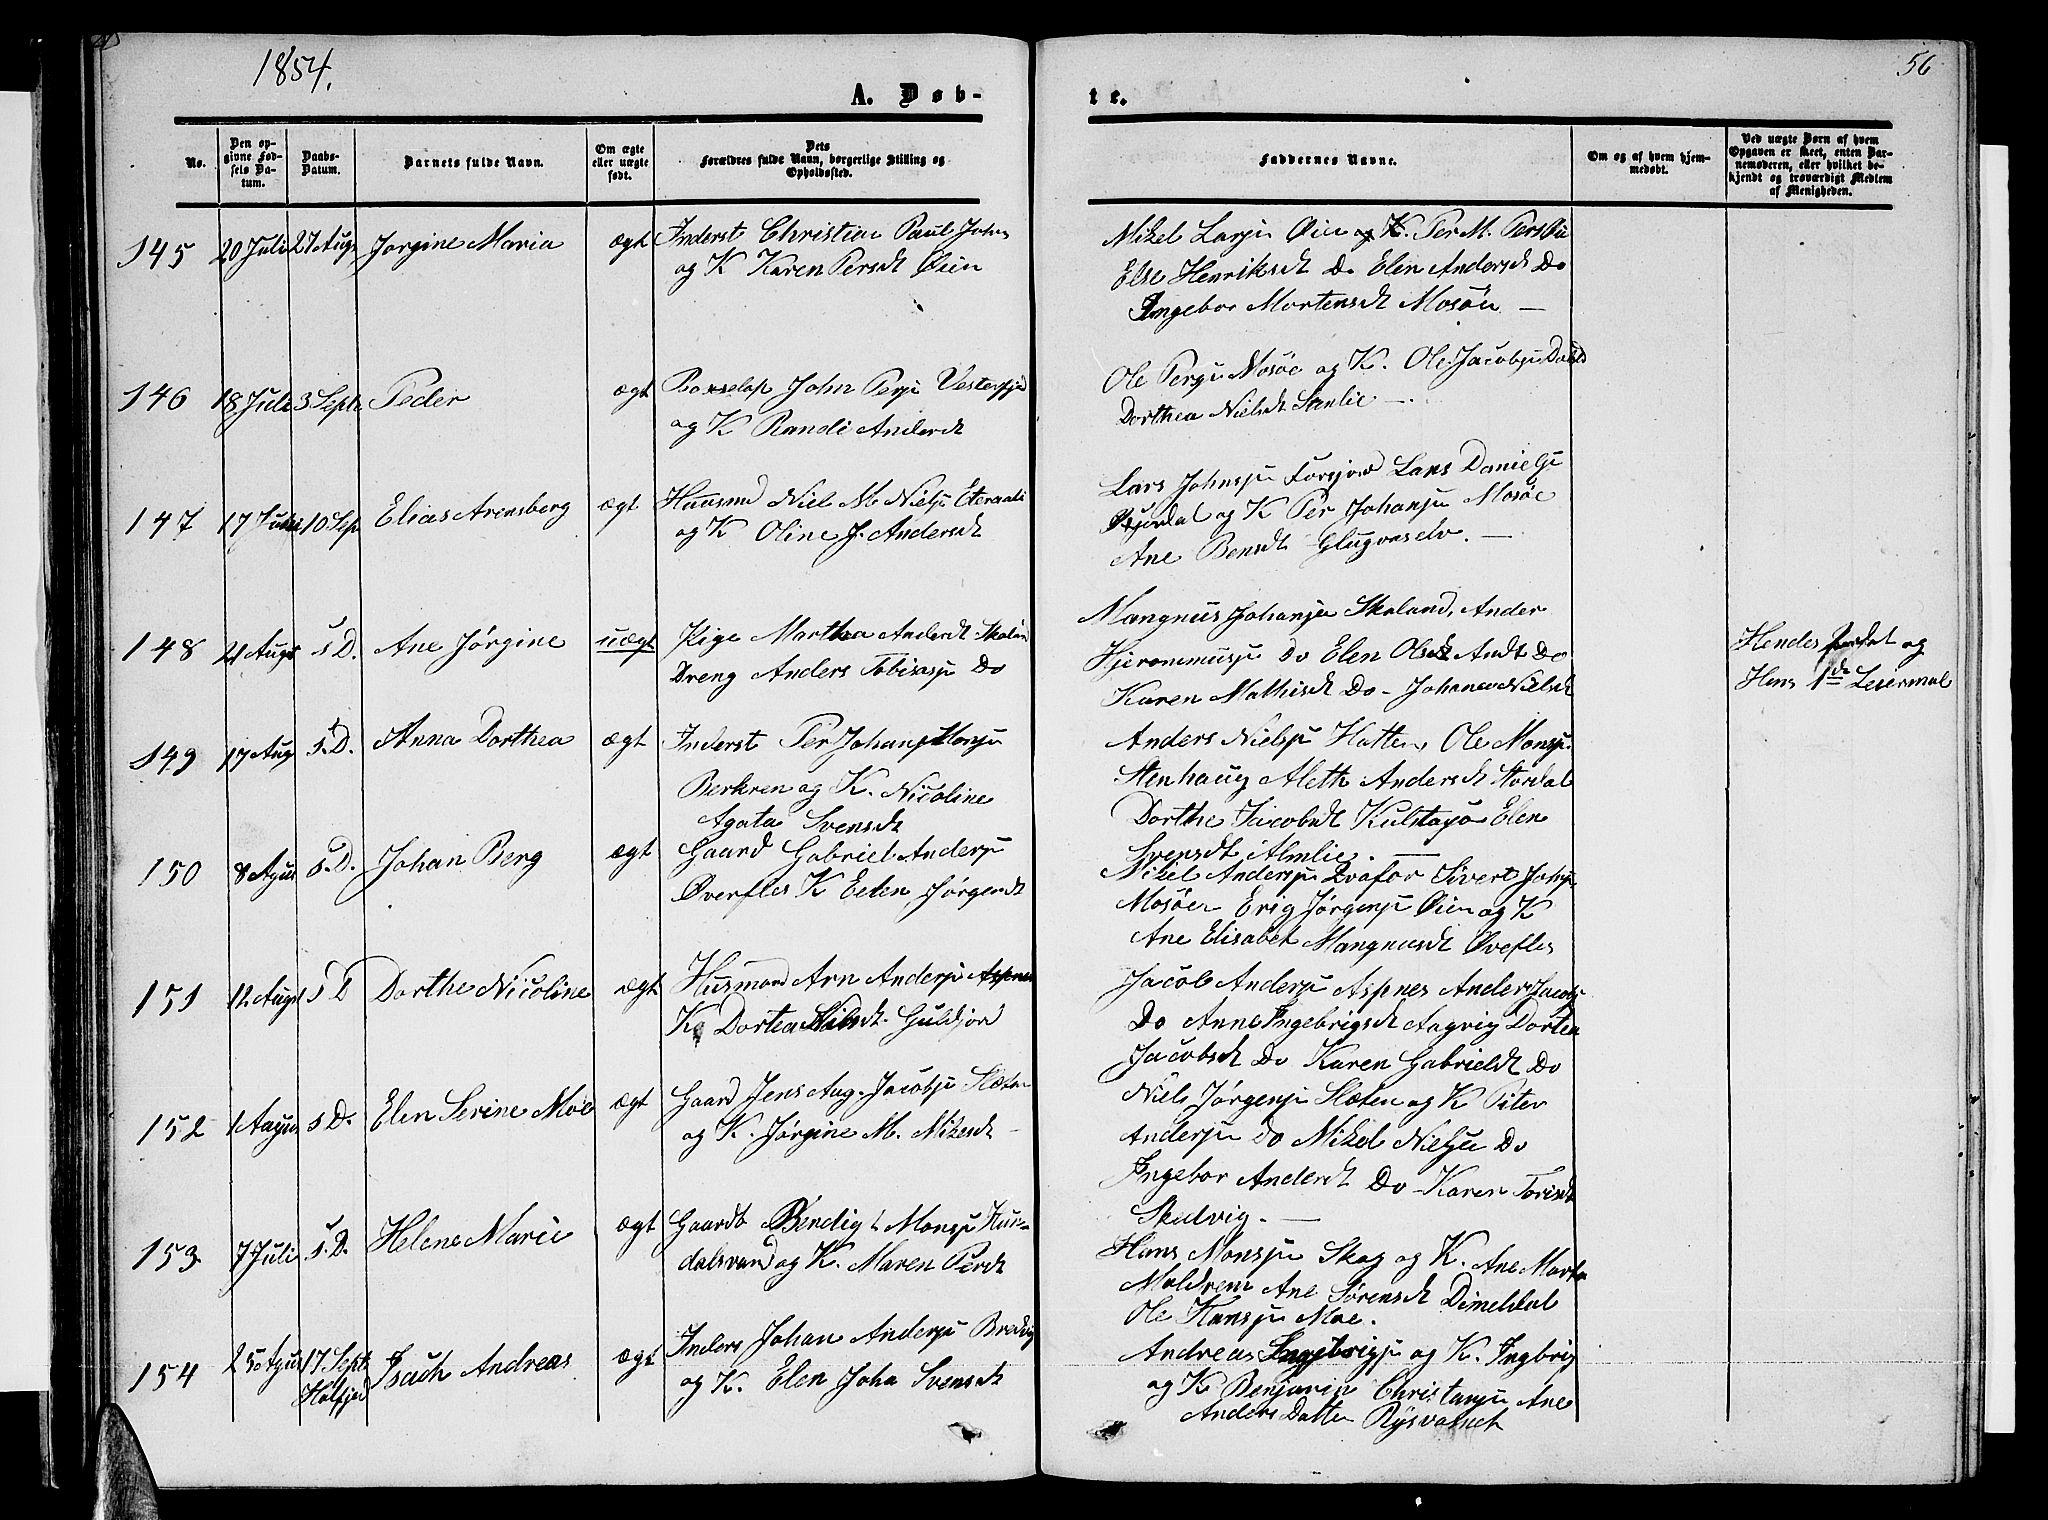 1854.
56
A. Døb-
te.
No.
Den op-
givne Fød-
sels Da-
tum.
Daabs-
Datum.
Barnets fulde Navn.
Om ægte
eller uægte
født.
Dets
Forældres fulde Navn, borgerlige Stilling og
Opholdssted.
Faddernes Navne.
Om og af hvem hjem-
medøbt.
Ved uægte Børn af hvem
Opgaven er skeet, enten Bar-
nemoderen, eller hvilket be-
kjendt og troværdigt Medlem
af Menigheden.
145 20 Juli 27 Augs Jørgine Maria ægt Inderst Christian Paul Johns
og K Karen Persdt Øien
Mikel Larsn Øien og K. Per M. Persøn
Else Henriksdt Do Elen Andersdt Do
Ingebor Mortensdt Mosøen —
146 18 Juli 3 Septe Peder ægt John Persn Vesterfjel
og K Randi Anderdt
Ole Persn Mosøe og K. Ole Jacobsn
Dorthea Nielsdt Stenlie —.
147 17 Juli 10 Sep Elias Arensberg ægt Huusmd Niel M. Nielsn
og K Oline J. Andersdt
Lars Johnsn Forsjord Lars Danielsn
og K Per Johansn Mosøe
Ane Bensdt Glugvaselv. —
148 21 Augs s D. Ane Jørgine uægt Pige Martha Anderdt Skalan
Dreng Anders Tobiasn Do
Mangnus Johansn Skaland, Ander
Hjeronimusn Do Elen Olsdt Do
Karen Mathisdt Do - Johanes Nielsdt
Hendes og
Hans 1de Leiermal
149 17 Aug s. D. Anna Dorthea ægt Inderst Per Johans Monsn
og K. Nicoline
Agata Svensdt
Anders Nielsn Hatten, Ole Monsn
Stenhaug Aleth Andersdt Stordal
Dorthe Jacobsdt Kulstasjø Elen
Svensdt Almlie. —
150 8 Agus s. D. Johan Berg ægt Gaard Gabriel Andersn
Øverfles K Eelen Jørgendt
Nikel Andersn Dvafor Sivert Johsn
Mosøen Erig Jørgensn Øien og K
Ane Elisabet Mangnusdt Øvefles
151 12 Augs s D Dorthe Nicoline ægt Husmand Arn Andersn Aspnes
K Dortea Nilsdt. Guldjord
Jacob Andersn Aspnes Anders Jacobs
Do Anne Ingebrigsdt Aagvig Dortea
Jacobsdt Do Karen Gabrieldt Do
152 1 Augus s D. Elen Serine Moe ægt Gaard Jens Aug. Jacobsn Slæten
og K. Jørgine M. Mikesdt
Niels Jørgensn Slæten og K Piter
Andersn do Mikel Nielsn Do
Ingebor Anderdt Do - Karen Torisdt
Skedvig. —
153 7 Juli s. D. Helene Marie ægt Gaardb Bendigt Monsn Hun-
dalsvand og K. Maren Perdt
Hans Monsn Skog og K. Ane Marta
Moldrem Ane Sørensdt Dimeldal
Ole Hansn Moe.
154 25 Agus 17 Septe Isach Andreas ægt Inders Johan Andersn Bredvig
Holfjel
og K. Elen Joha Svensdt
Andreas Ingebrigsn og K. Ingbrig
og K Benjamin Christansn Ane
Anders Datter Rysvatnet